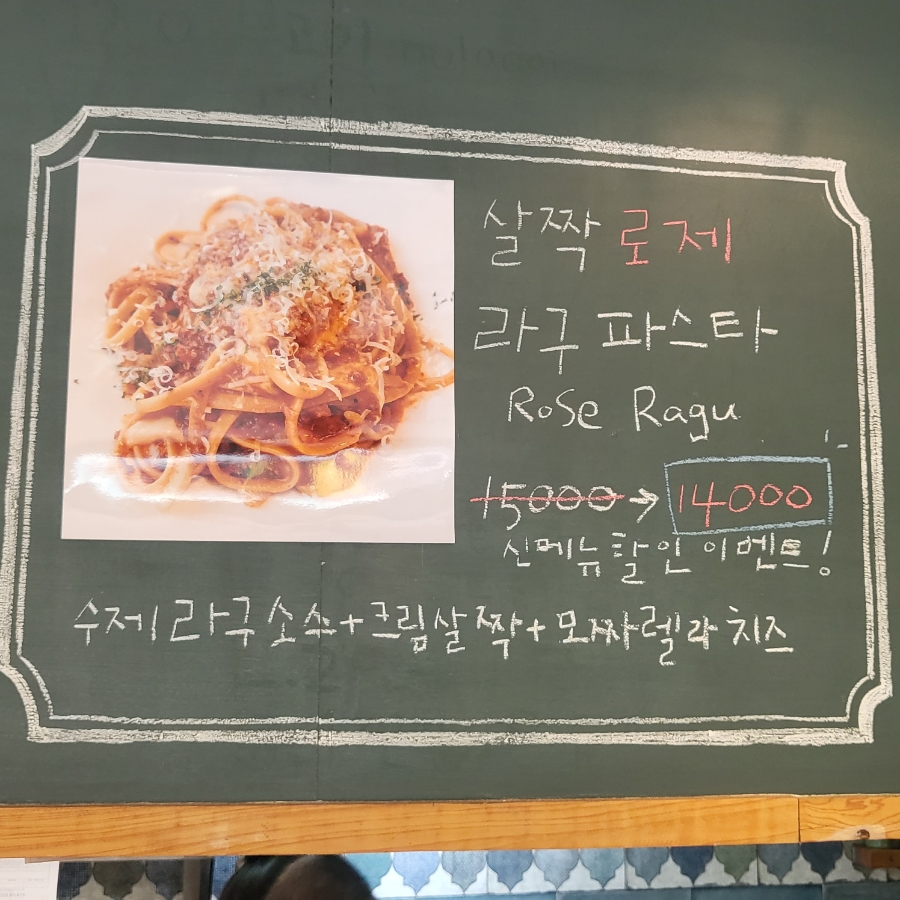 살짝 로제
라구 파스타
Rose Ragu
15000 → 14000
신메뉴 할인 이벤트!
수제 라구소스+크림살짝+모짜렐라 치즈